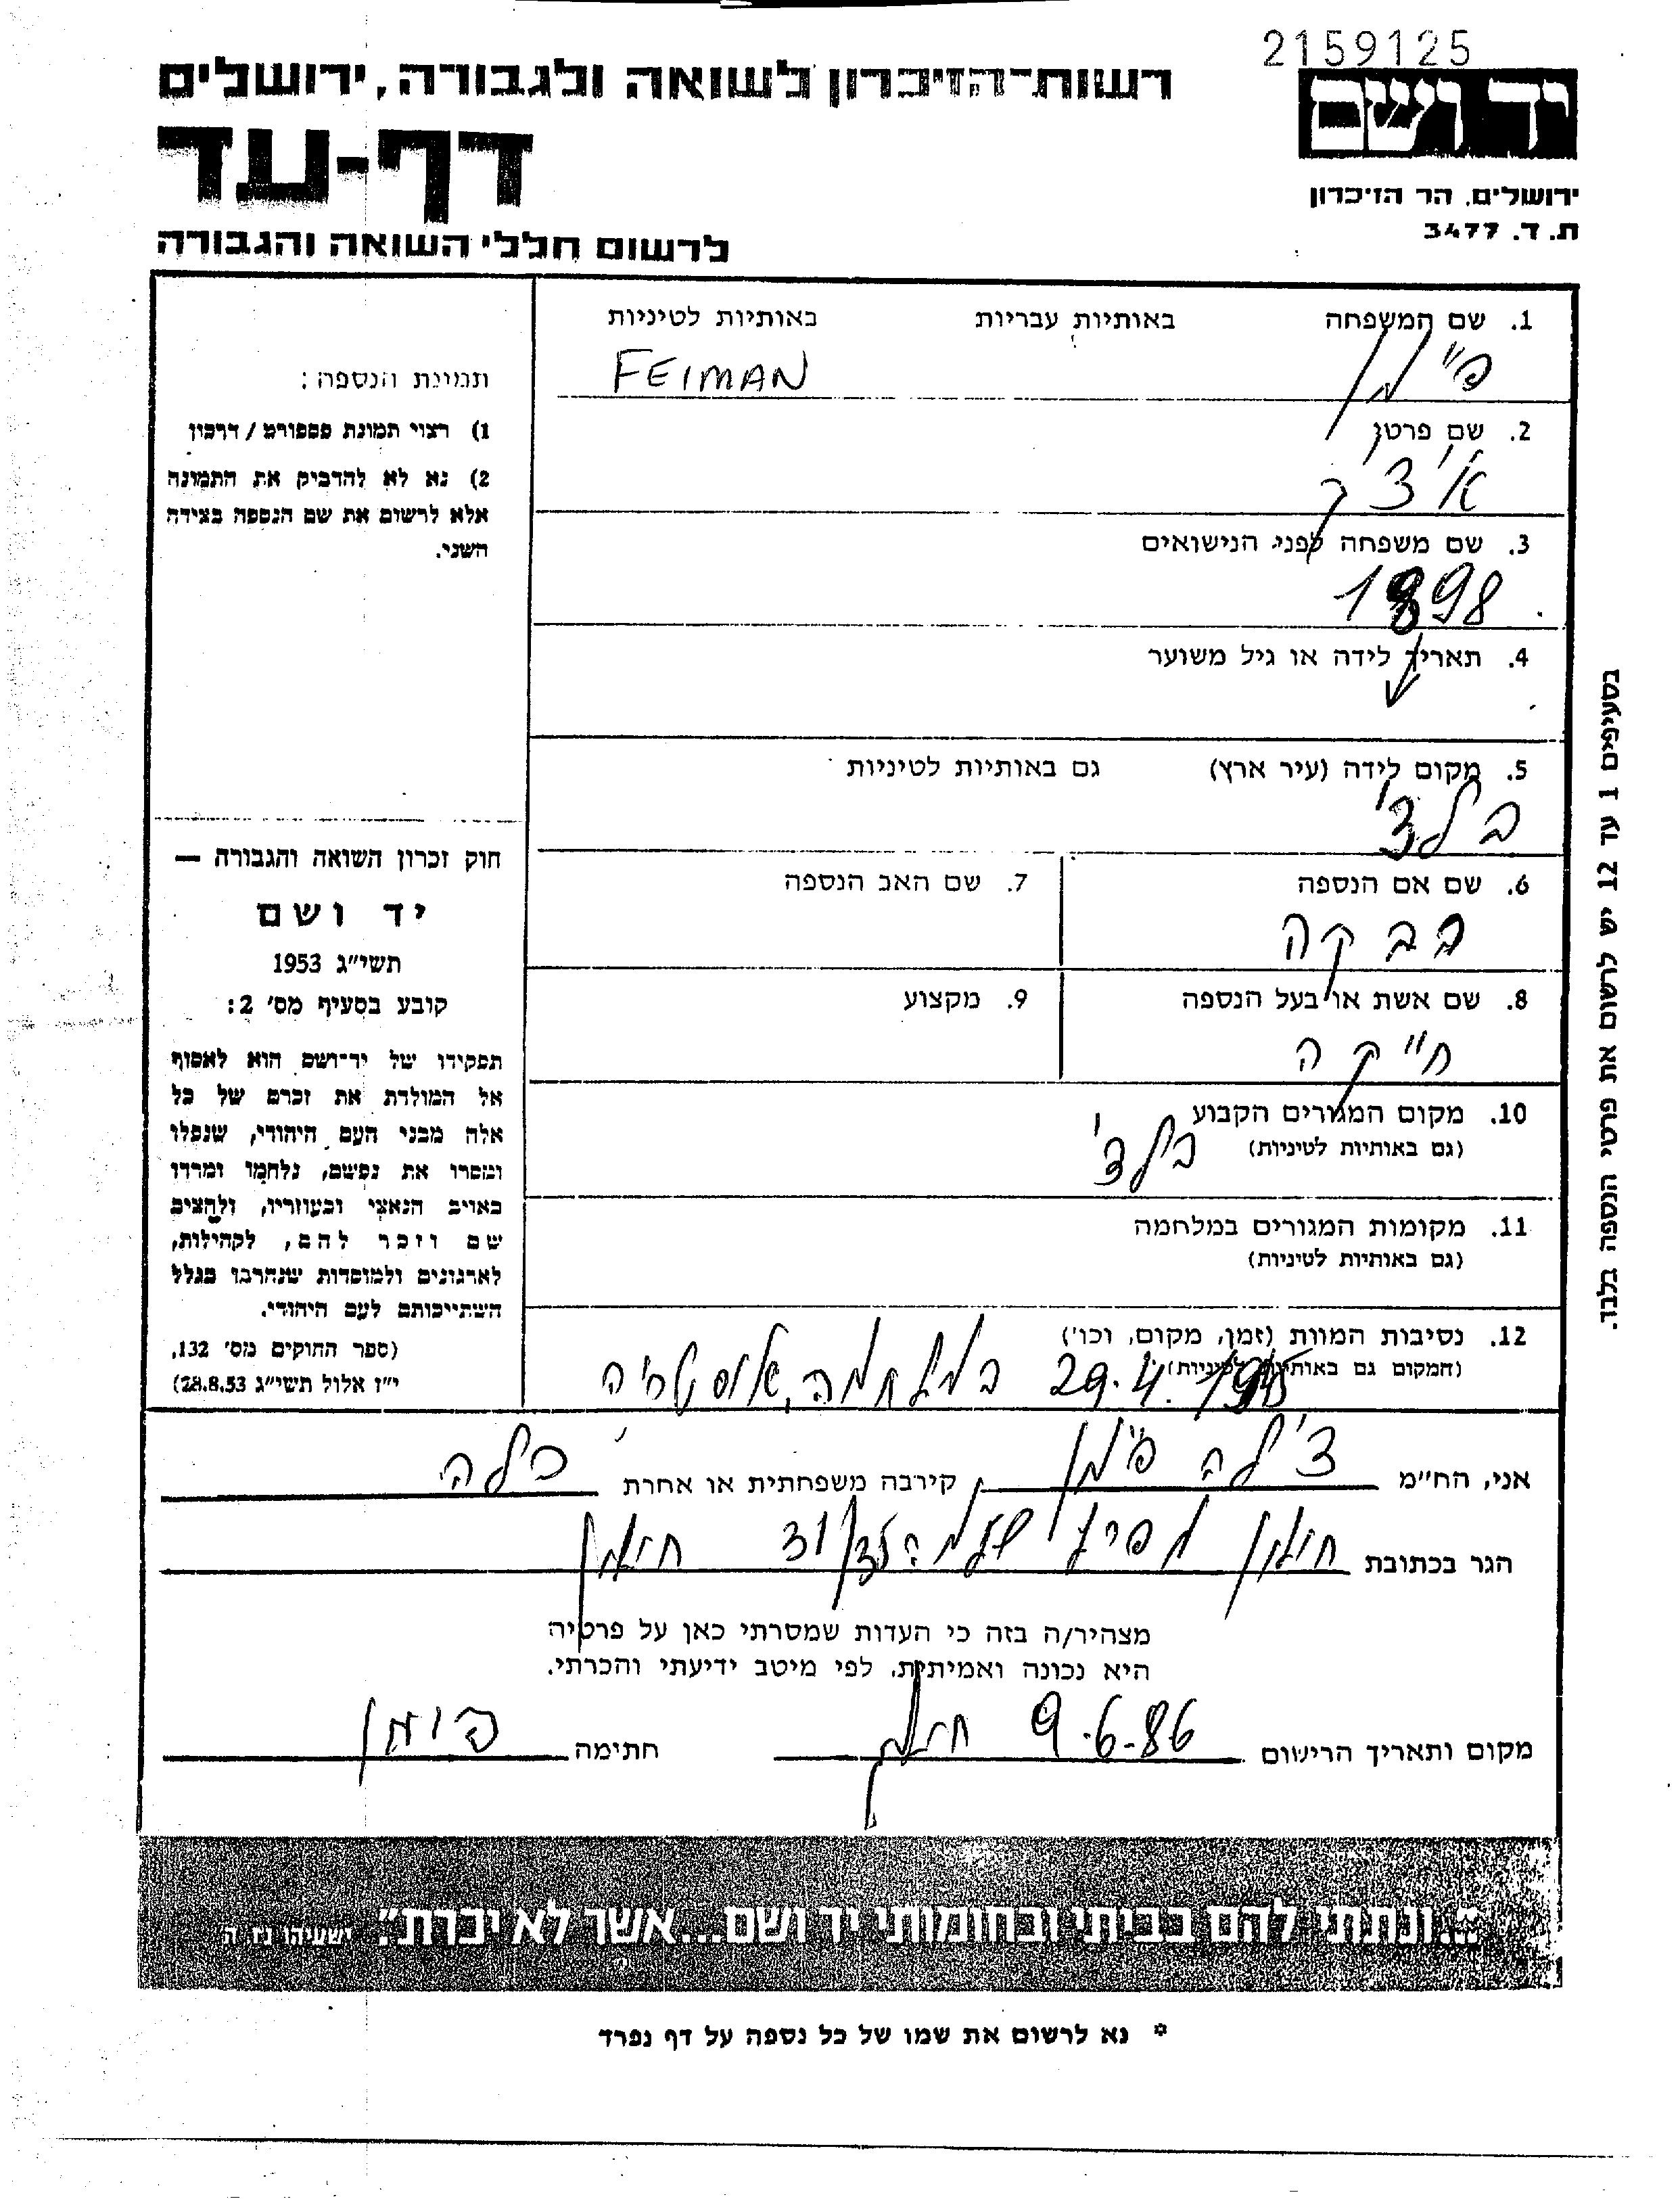 2159125
רשות־הזיכרון לשואה ולגבורה, ירושלים
יד ושם
דף-עד
ירושלים, הר הזיכרון
ת. ד. 3477
לרשום חללי השואה והגבורה
1. שם המשפחה באותיות עבריות באותיות לטיניות
פיימן FEIMAN
2. שם פרטי
איציק
3. שם משפחה לפני הנישואים
1898
4. תאריך לידה או גיל משוער
5. מקום לידה (עיר ארץ) גם באותיות לטיניות
בלצי
6. שם אם הנספה 7. שם האב הנספה
רבקה
8. שם אשת או בעל הנספה 9. מקצוע
חייקה
10. מקום המגורים הקבוע
(גם באותיות לטיניות)
בלצי
11. מקומות המגורים במלחמה
(גם באותיות לטיניות)
12. נסיבות המוות (זמן, מקום, וכו')
(המקום גם באותיות לטיניות)
29.4.1945 במלחמה, אוסטריה
תמונת הנספה:
1) רצוי תמונת פספורט / דרכון
2) נא לא להדביק את התמונה
אלא לרשום את שם הנספה בצידה
השני.
חוק זכרון השואה והגבורה —
יד ושם
תשי"ג 1953
קובע בסעיף מס' 2:
תפקידו של יד־ושם הוא לאסוף
אל המולדת את זכרם של כל
אלה מבני העם היהודי, שנפלו
ומסרו את נפשם, נלחמו ומרדו
באויב הנאצי ובעוזריו, ולהציב
שם וזכר להם, לקהילות,
לארגונים ולמוסדות שנחרבו בגלל
השתייכותם לעם היהודי.
(ספר החוקים מס' 132,
י"ז אלול תשי"ג 28.8.53)
בסעיפים 1 עד 12 יש לרשום את פרטי הנספה בלבד.
אני, הח"מ צילה פיימן קירבה משפחתית או אחרת כלה
הגר בכתובת חולון 31 חולון
מצהיר/ה בזה כי העדות שמסרתי כאן על פרטיה
היא נכונה ואמיתית, לפי מיטב ידיעתי והכרתי.
מקום ותאריך הרישום 9.6.86 חולון חתימה פימן
"...ונתתי להם בביתי ובחומותי יד ושם...אשר לא יכרת". ישעיהו נו ה
* נא לרשום את שמו של כל נספה על דף נפרד